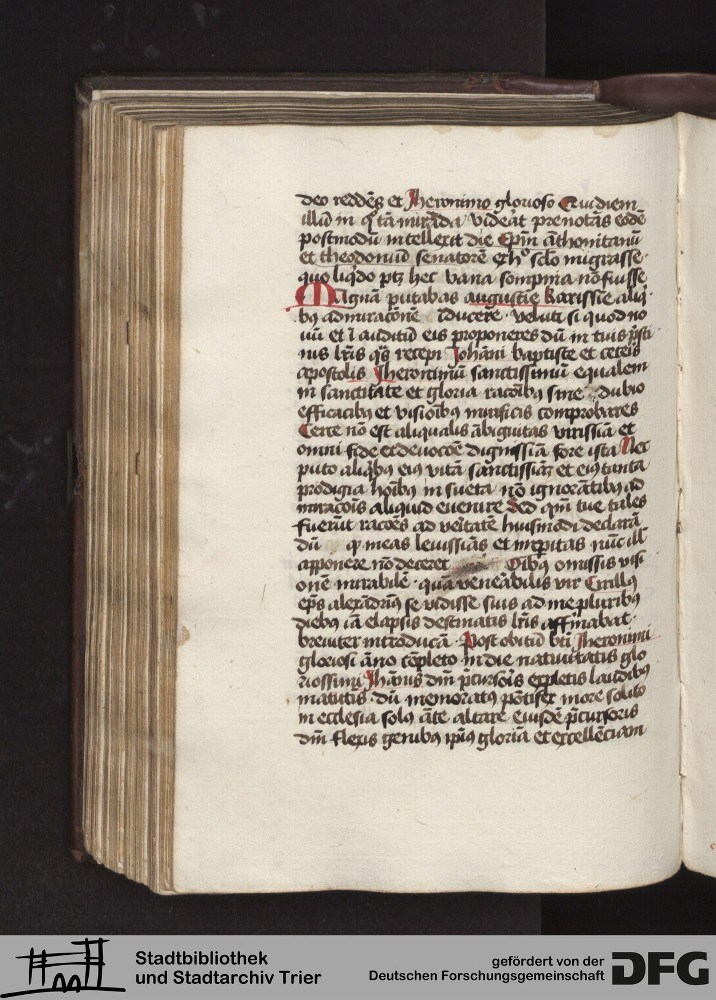 deo reddēs et Jheronimo glorioso Quidiem
illū in qͣ tā mirāda videāt prenotās eodē
postmodū intellexit die Epm̄ āthonitanū
et theodoniū senatorē ex hͦ sclo migrasse
quo liqͥdo ptꝫ hec vana sompnia nō fuisse
Magnā putabas augustīe karissīe aliqͥ
bꝯ admiracōne īducere veluti si quod no
uū et ī auditū eis proponeres dū in tuis pͥsti
nis lrīs qͣs recepi Johāni baptiste et ceteis
apostolis Jheronimū sanctissimū equalem
in sanctitate et gloria racōibꝯ sine dubio
efficacibꝯ et visiōibꝯ mirificis comprobares
Certe nō est aliqualis ābiguitas virissīa et
omni fide et deuocōe dignissīa fore ista Nec
puto aliqͥbꝯ eiꝯ vitā sanctissīaꝫ et eiꝯ tanta
prodigia hoībꝯ in sueta nō ignorātibꝯ ad
miracōis aliquid euenire Sed qm̄ tue tales
fuerūt racōes ad veitatē huiusmodi declarā
dū qͥ meas leuissīas et impitas nūc ill
apponere nō deceret Oībꝯ omissis visi
onē mirabilē quā veneābilis vir Cirillꝯ
ep̄s alexādrinꝯ se vidisse suis ad me pluribꝯ
diebꝯ iā elapsis destinatis lrīs affirmabat
breuiter introducā Post obitū btī Jheronimi
gloriosi āno cōpleto In die natiuitatis glo
riossimi Jhānis dm̄ pͥcursoris expletis laudibꝯ
matutīs dū memoratꝯ pōtifex more solito
in ecclesia solꝯ āte altare eiusdē pͥcursoris
dm̄ flexis genibꝯ ipiꝯ gloriā et excellēciam
Stadtbibliothek
und Stadtarchiv Trier
gefördert von der
Deutschen Forschungsgemeinschaft
DFG